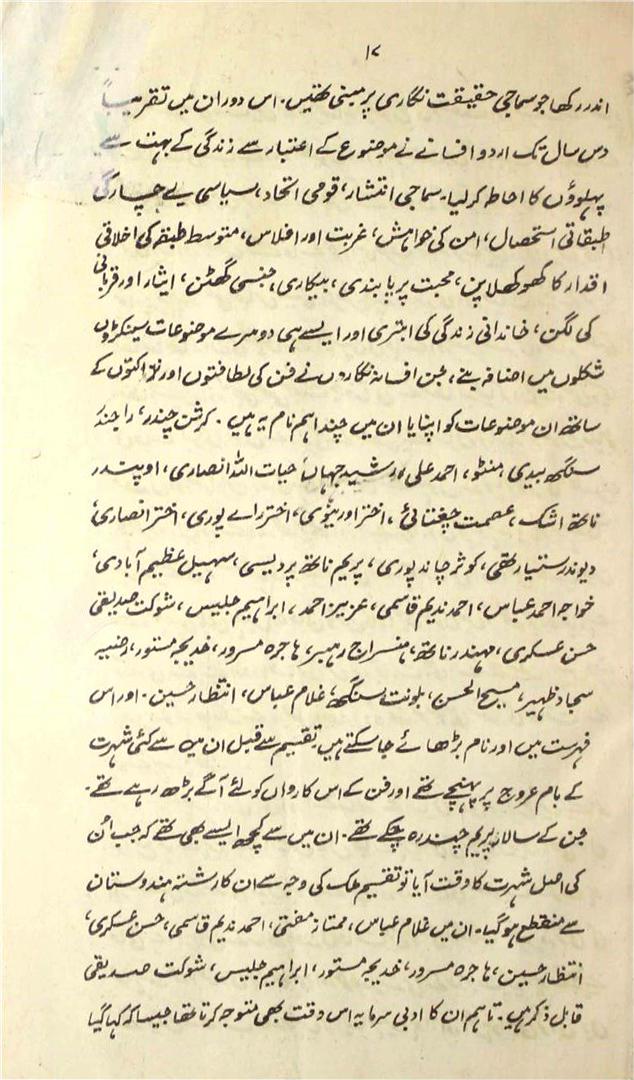 ۱۷
اندر رکھا جو سماجی حقیقت نگاری پر مبنی تھیں۔ اس دوران میں تقریباً
دس سال تک اردو افسانے نے موضوع کے اعتبار سے زندگی کے بہت سے
پہلوؤں کا احاطہ کرلیا۔ سماجی انتشار، قومی اتحاد، سیاسی بے چارگی
طبقاتی استحصال، امن کی خواہش، غربت اور افلاس، متوسط طبقہ کی اخلاقی
اقدار کا کھوکھلاپن، محبت پر پابندی، بیکاری، جنسی گھٹن، ایثار اور قربانی
کی لگن، خاندانی زندگی کی ابتری اور ایسے ہی دوسرے موضوعات سینکڑوں
شکلوں میں اضافہ بنے، جن افسانہ نگاروں نے فن کی لطافتوں اور نزاکتوں کے
ساتھ ان موضوعات کو اپنایا ان میں چند اہم نام یہ ہیں۔ کرشن چندر، راجندر
سنگھ بیدی، منٹو، احمد علی، رشید جہاں، حیات اللہ انصاری، اوپندر
ناتھ اشک، عصمت چغتائی، اختر اورینوی، اختر رائے پوری، اختر انصاری،
دیوندر ستیارتھی، کوثر چاند پوری، پریم ناتھ پردیسی، سہیل عظیم آبادی،
خواجہ احمد عباس، احمد ندیم قاسمی، عزیز احمد، ابراہیم جلیس، شوکت صدیقی
حسن عسکری، مہندر ناتھ، ہنسراج رہبر، ہاجرہ مسرور، خدیجہ مستور، رضیہ
سجاد ظہیر، مسیح الحسن، بلونت سنگھ، غلام عباس، انتظار حسین۔ اور اس
فہرست میں اور نام بڑھائے جاسکتے ہیں۔ تقسیم سے قبل ان میں سے کئی شہرت
کے بام عروج پر پہنچے تھے اور فن کے اس کارواں کو لئے آگے بڑھ رہے تھے۔
جن کے سالار پریم چند رہ چکے تھے۔ ان میں سے کچھ ایسے بھی تھے کہ جب اُن
کی اصل شہرت کا وقت آیا تو تقسیم ملک کی وجہ سے ان کا رشتہ ہندوستان
سے منقطع ہوگیا۔ ان میں غلام عباس، ممتاز مفتی، احمد ندیم قاسمی، حسن عسکری،
انتظار حسین، ہاجرہ مسرور، خدیجہ مستور، ابراہیم جلیس، شوکت صدیقی
قابل ذکر ہیں۔ تاہم ان کا ادبی سرمایہ اس وقت بھی متوجہ کرتا تھا جیسا کہ کہا گیا